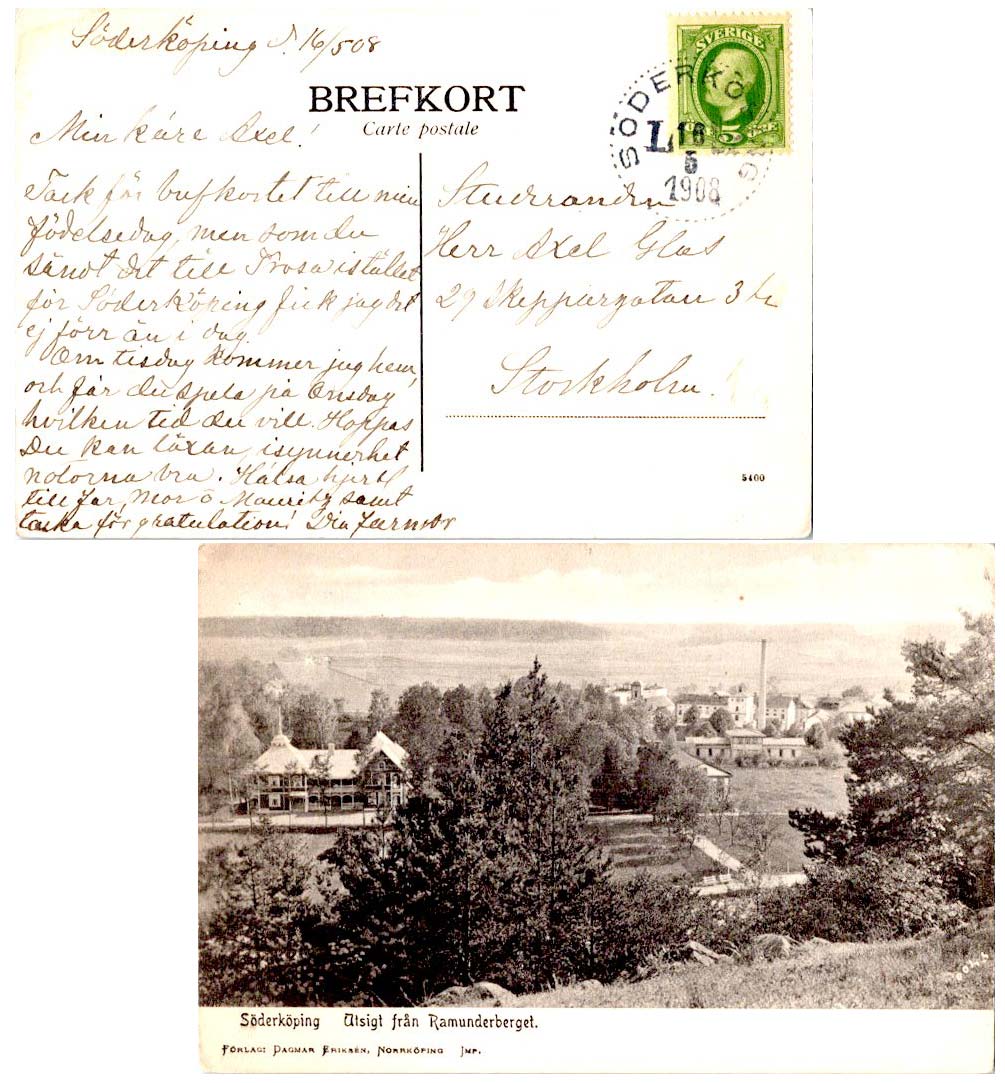 Söderköping d. 16/5 08
BREFKORT
Carte postale
SVERIGE
5 ÖRE
SÖDERKÖPING
L
16
5
1908
Min käre Axel!
Tack för brefkortet till min
födelsedag, men som du
sändt det till Trosa istället
för Söderköping fick jag det
ej förr än i dag.
Om tisdag kommer jag hem,
och får du spela på Onsdag
hvilken tid du vill. Hoppas
Du kan läxan, isynnerhet
noterna bra. Hälsa hjertl
till far, mor o Mauritz samt
tacka för gratulation! Din
Studeranden
Herr Axel Glas
29 Skeppargatan 3 tr
Stockholm.
5400
Söderköping Utsigt från Ramunderberget.
FÖRLAG: DAGMAR ERIKSÉN, NORRKÖPING IMP.